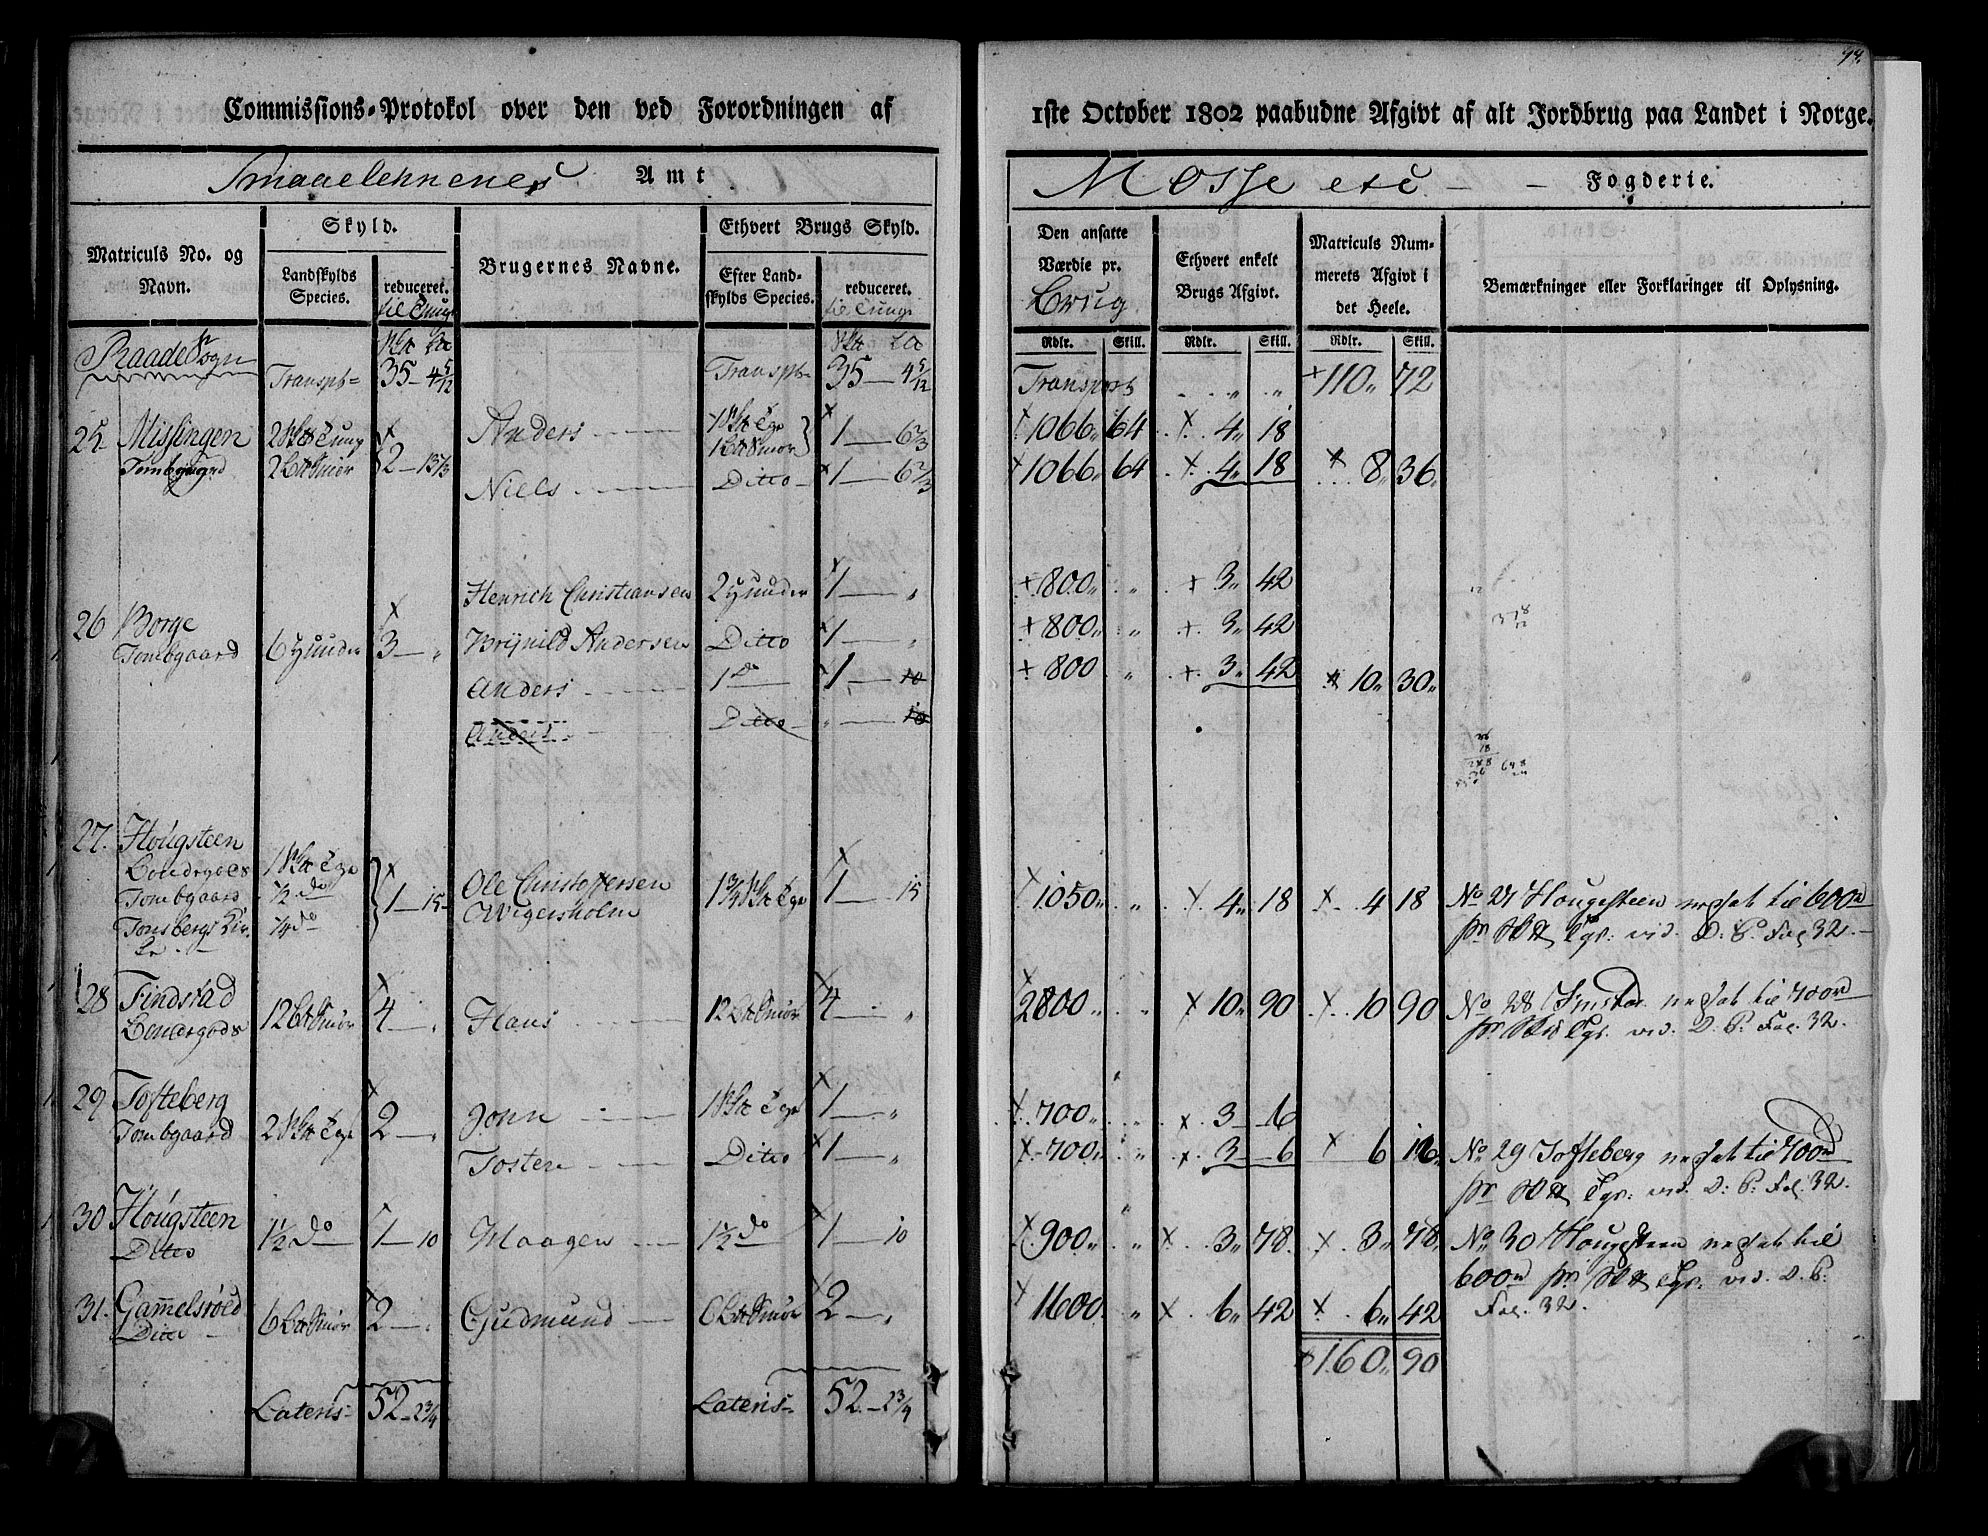 94.
Commissions-Protokol over den ved Forordningen af 1ste October 1802 paabudne Afgivt af alt Jordbrug paa Landet i Norge.
Smaaelehnenes Amt Mosse etc - - Fogderie.
Matriculs No. og Navn.
Skyld.
Landskylds Species.
reduceret. til Tunge
Brugernes Navne.
Ethvert Brugs Skyld.
Efter Landskylds Species.
reduceret. til Tunge
Den ansatte Værdie pr. Brug
Ethvert enkelt Brugs Afgivt.
Matriculs Nummerets Afgivt i det Heele.
Bemærkninger eller Forklaringer til Oplysning.
Rdlr. Skill. Rdlr. Skill. Rdlr. Skill.
Raade Sogn Transpt= 35 - 4 5/12 Transpt= 35 - 4 5/12 Transport " " +110" 72
25 Missingen 2 Tung Anders 1 Tge 1 Smør 1 - 6 2/3 1066" 64 4" 18
Tombgaard 2 Smør 2 - 13 1/3 Niels Ditto 1 - 6 2/3 1066" 64 4" 18 8" 36"
Henrich Christiansen 2 Huuder 1 - " 800" " 3" 42
26 Borge Tombgaard 6 Huuder 3 - " Brynild Andersen Ditto 1 - " 800" " 3" 42
Anders 1 do 1 - 10 800 " 3" 42 10" 30"
Anders Ditto " - 10
27. Hougsteen
Bondegods 1 Tge
Tombgaard 1/2 do 1 - 15 Ole Christoffersen Wigersholm 1 3/4 Tge 1 15 1050" " 4" 18 4 18 No 27 Hougesteen nedsat til 600rd
Tonsbergs Kirke 1/4 do pr. Tge: vid. D: P. Fol 32.
28 Findstad Bondegods 12 Smør 4 - " Hans 12 Smør 4 - " 2800" " 10" 90 10 90 No 28 nedsat til 700rd
pr. Tge. vid. D. P. Fol. 32.
29 Tofteberg Tombgaard 2 Tge 2 - " John 1 Tge 1 - " 700" " 3 - 6
Tosten Ditto 1 - " 700" " 3 - 6 6 No 29 Tofteberg nedsat til 700rd
pr Tge: vid. D: P. Fol: 32.
30 Hougsteen Ditto 1 1/2 do 1 - 10 Haagen 1 1/2 do 1 10 900" " 3" 78. 3" 78" No 30 Hougesteen nedsat til
600rd pr. Tge. vid. D. P.
Fol. 32.
31. Gammelsrøed Ditto 6 Smør 2 - " Gudmund 6 Smør 2 - " 1600 " 6" 42 6" 42
160" 90
Lateris- 52 - 2 3/4 Lateris- 52 - 2 3/4